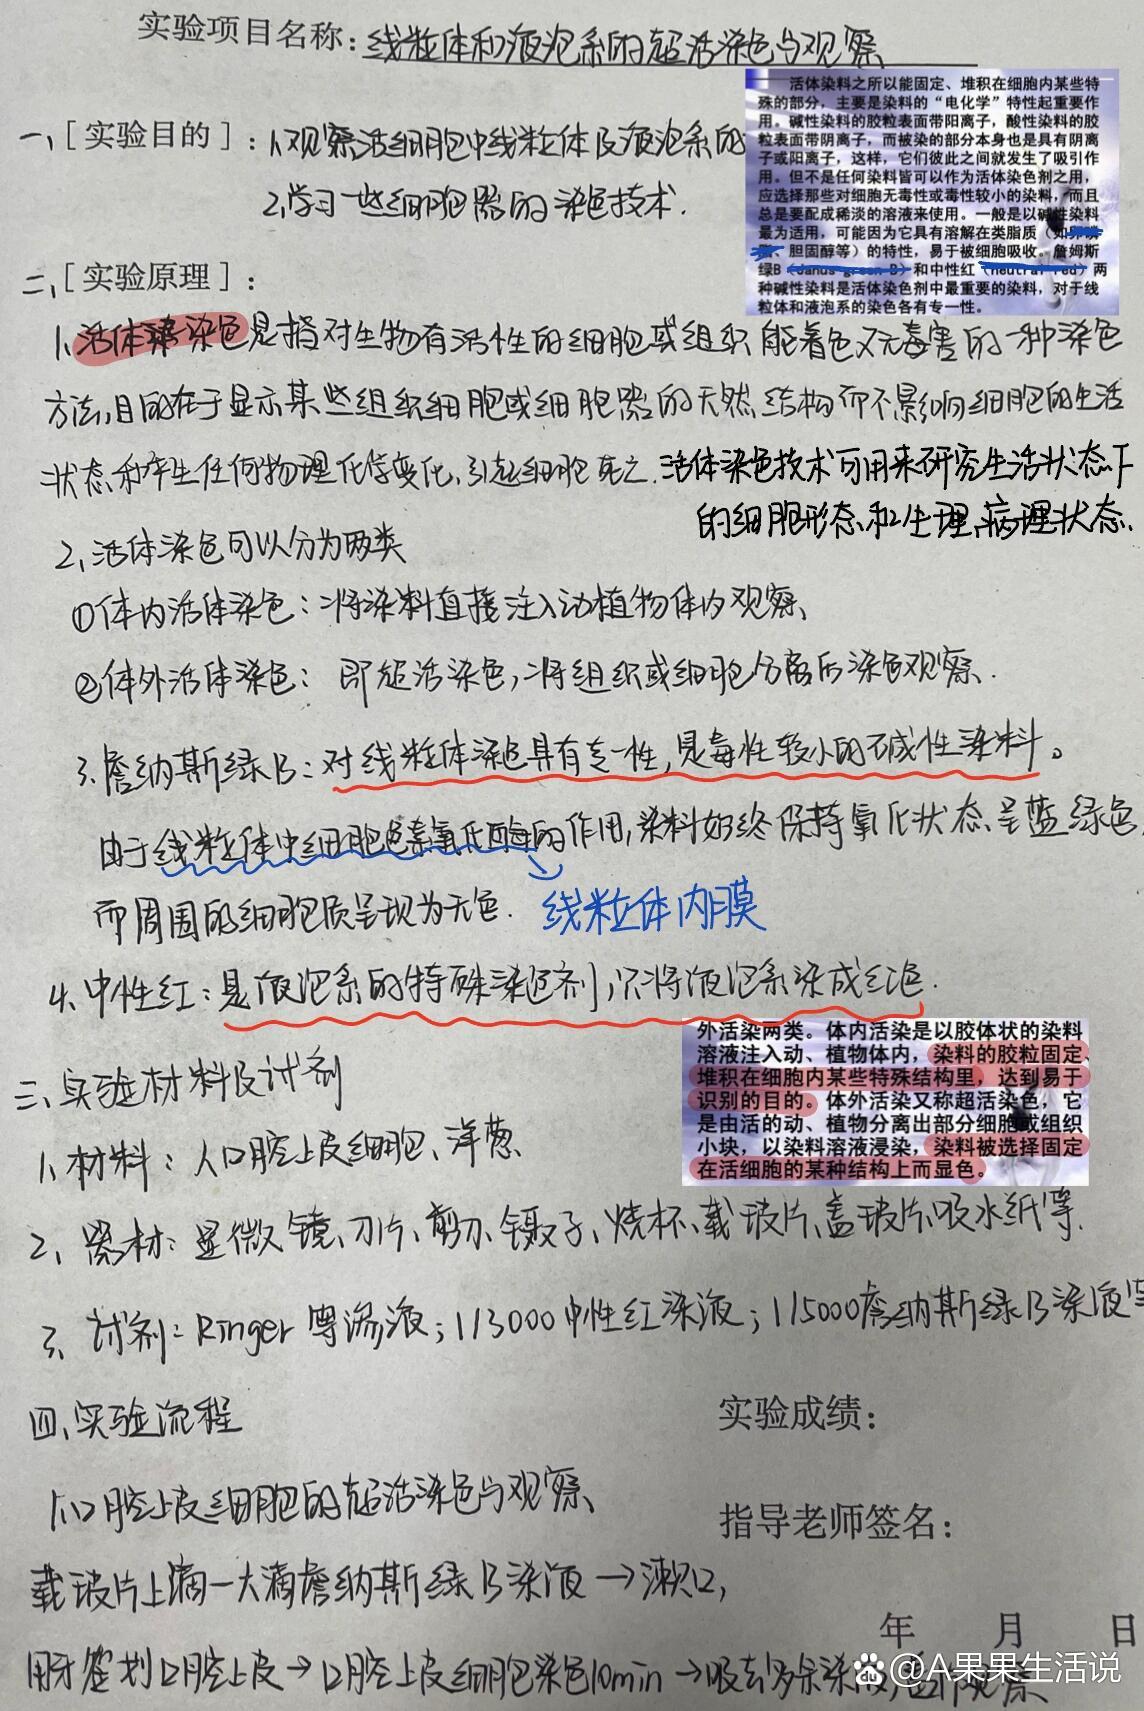 实验项目名称：线粒体和液泡系的超活染色与观察
活体染料之所以能固定、堆积在细胞内某些特
殊的部分，主要是染料的“电化学”特性起重要作
用。碱性染料的胶粒表面带阳离子，酸性染料的胶
粒表面带阴离子，而被染的部分本身也是具有阴离
子或阳离子，这样，它们彼此之间就发生了吸引作
用。但不是任何染料皆可以作为活体染色剂之用，
应选择那些对细胞无毒性或毒性较小的染料，而且
总是要配成稀淡的溶液来使用。一般是以碱性染料
最为适用，可能因为它具有溶解在类脂质（如卵磷
脂、胆固醇等）的特性，易于被细胞吸收。詹姆斯
绿B（Janus green B）和中性红（neutral red）两
种碱性染料是活体染色剂中最重要的染料，对于线
粒体和液泡系的染色各有专一性。
一、[实验目的]：1、观察活细胞中线粒体及液泡系的
2、学习一些细胞器的染色技术．
二、[实验原理]：
1、活体染色是指对生物有活性的细胞或组织能着色又无毒害的一种染色
方法，目的在于显示某些组织细胞或细胞器的天然结构而不影响细胞的生活
状态和产生任何物理化学变化，引起细胞死亡．活体染色技术可用来研究生活状态下
的细胞形态和生理、病理状态．
2、活体染色可以分为两类
①体内活体染色：将染料直接注入动植物体内观察、
②体外活体染色：即超活染色，将组织或细胞分离后染色观察．
3、詹纳斯绿B：对线粒体染色具有专一性，是毒性较小的碱性染料。
由于线粒体中细胞色素氧化酶的作用，染料始终保持氧化状态呈蓝绿色，
而周围的细胞质呈现为无色． 线粒体内膜
4、中性红：是液泡系的特殊染色剂，只将液泡系染成红色．
外活染两类。体内活染是以胶体状的染料
溶液注入动、植物体内，染料的胶粒固定、
堆积在细胞内某些特殊结构里，达到易于
识别的目的。体外活染又称超活染色，它
是由活的动、植物分离出部分细胞或组织
小块，以染料溶液浸染，染料被选择固定
在活细胞的某种结构上而显色。
三、实验材料及试剂
1、材料：人口腔上皮细胞、洋葱
2、器材：显微镜、刀片、剪刀、镊子、烧杯、载玻片、盖玻片、吸水纸等．
3、试剂：Ringer 溶液；1/3000中性红染液；1/5000詹纳斯绿B染液等
四、实验流程
实验成绩：
1、口腔上皮细胞的超活染色与观察、
指导老师签名：
载玻片上滴一大滴詹纳斯绿B染液→漱口，
年 月 日
用牙签划口腔上皮→口腔上皮细胞染色10min→吸去多余染液，
@A果果生活说